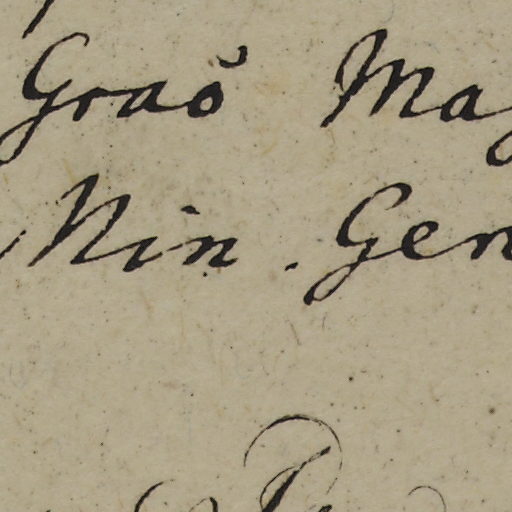 Graõ Mag
Min. Gen